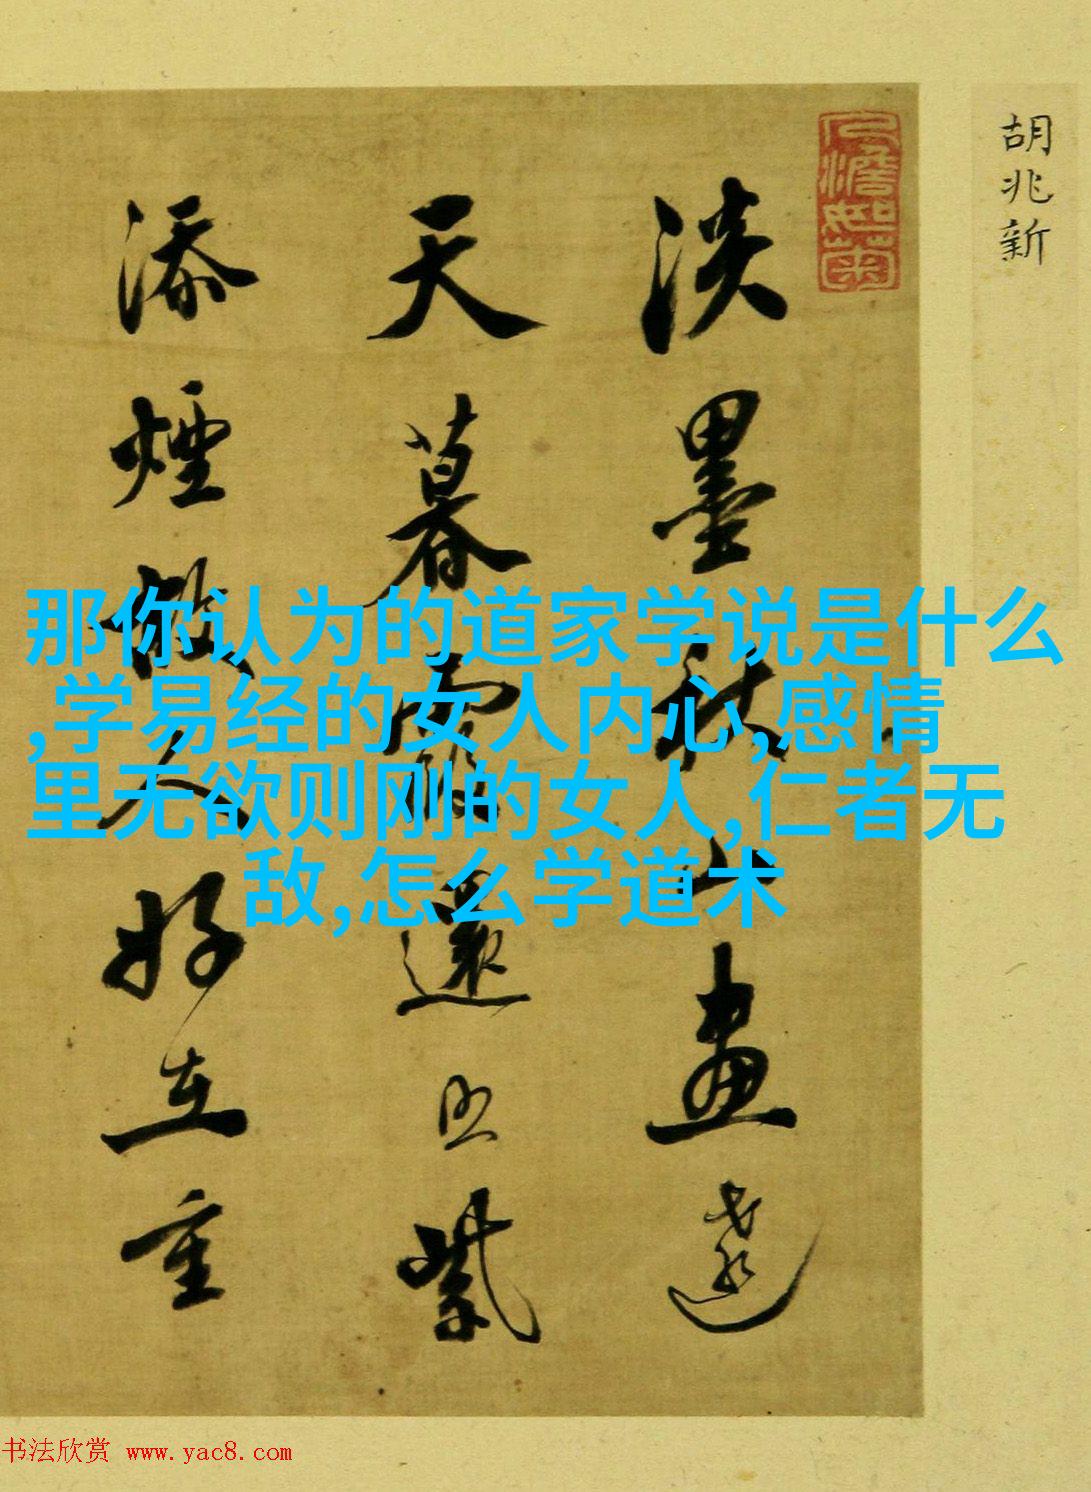 胡兆新
淡墨秋山畫遠
天暮霞還照紫
添煙故人好在重
那你认为的道家学说是什么
,学易经的女人内心,感情
里无欲则刚的女人,仁者无
敌,怎么学道术
书法欣赏 www.yac8.com